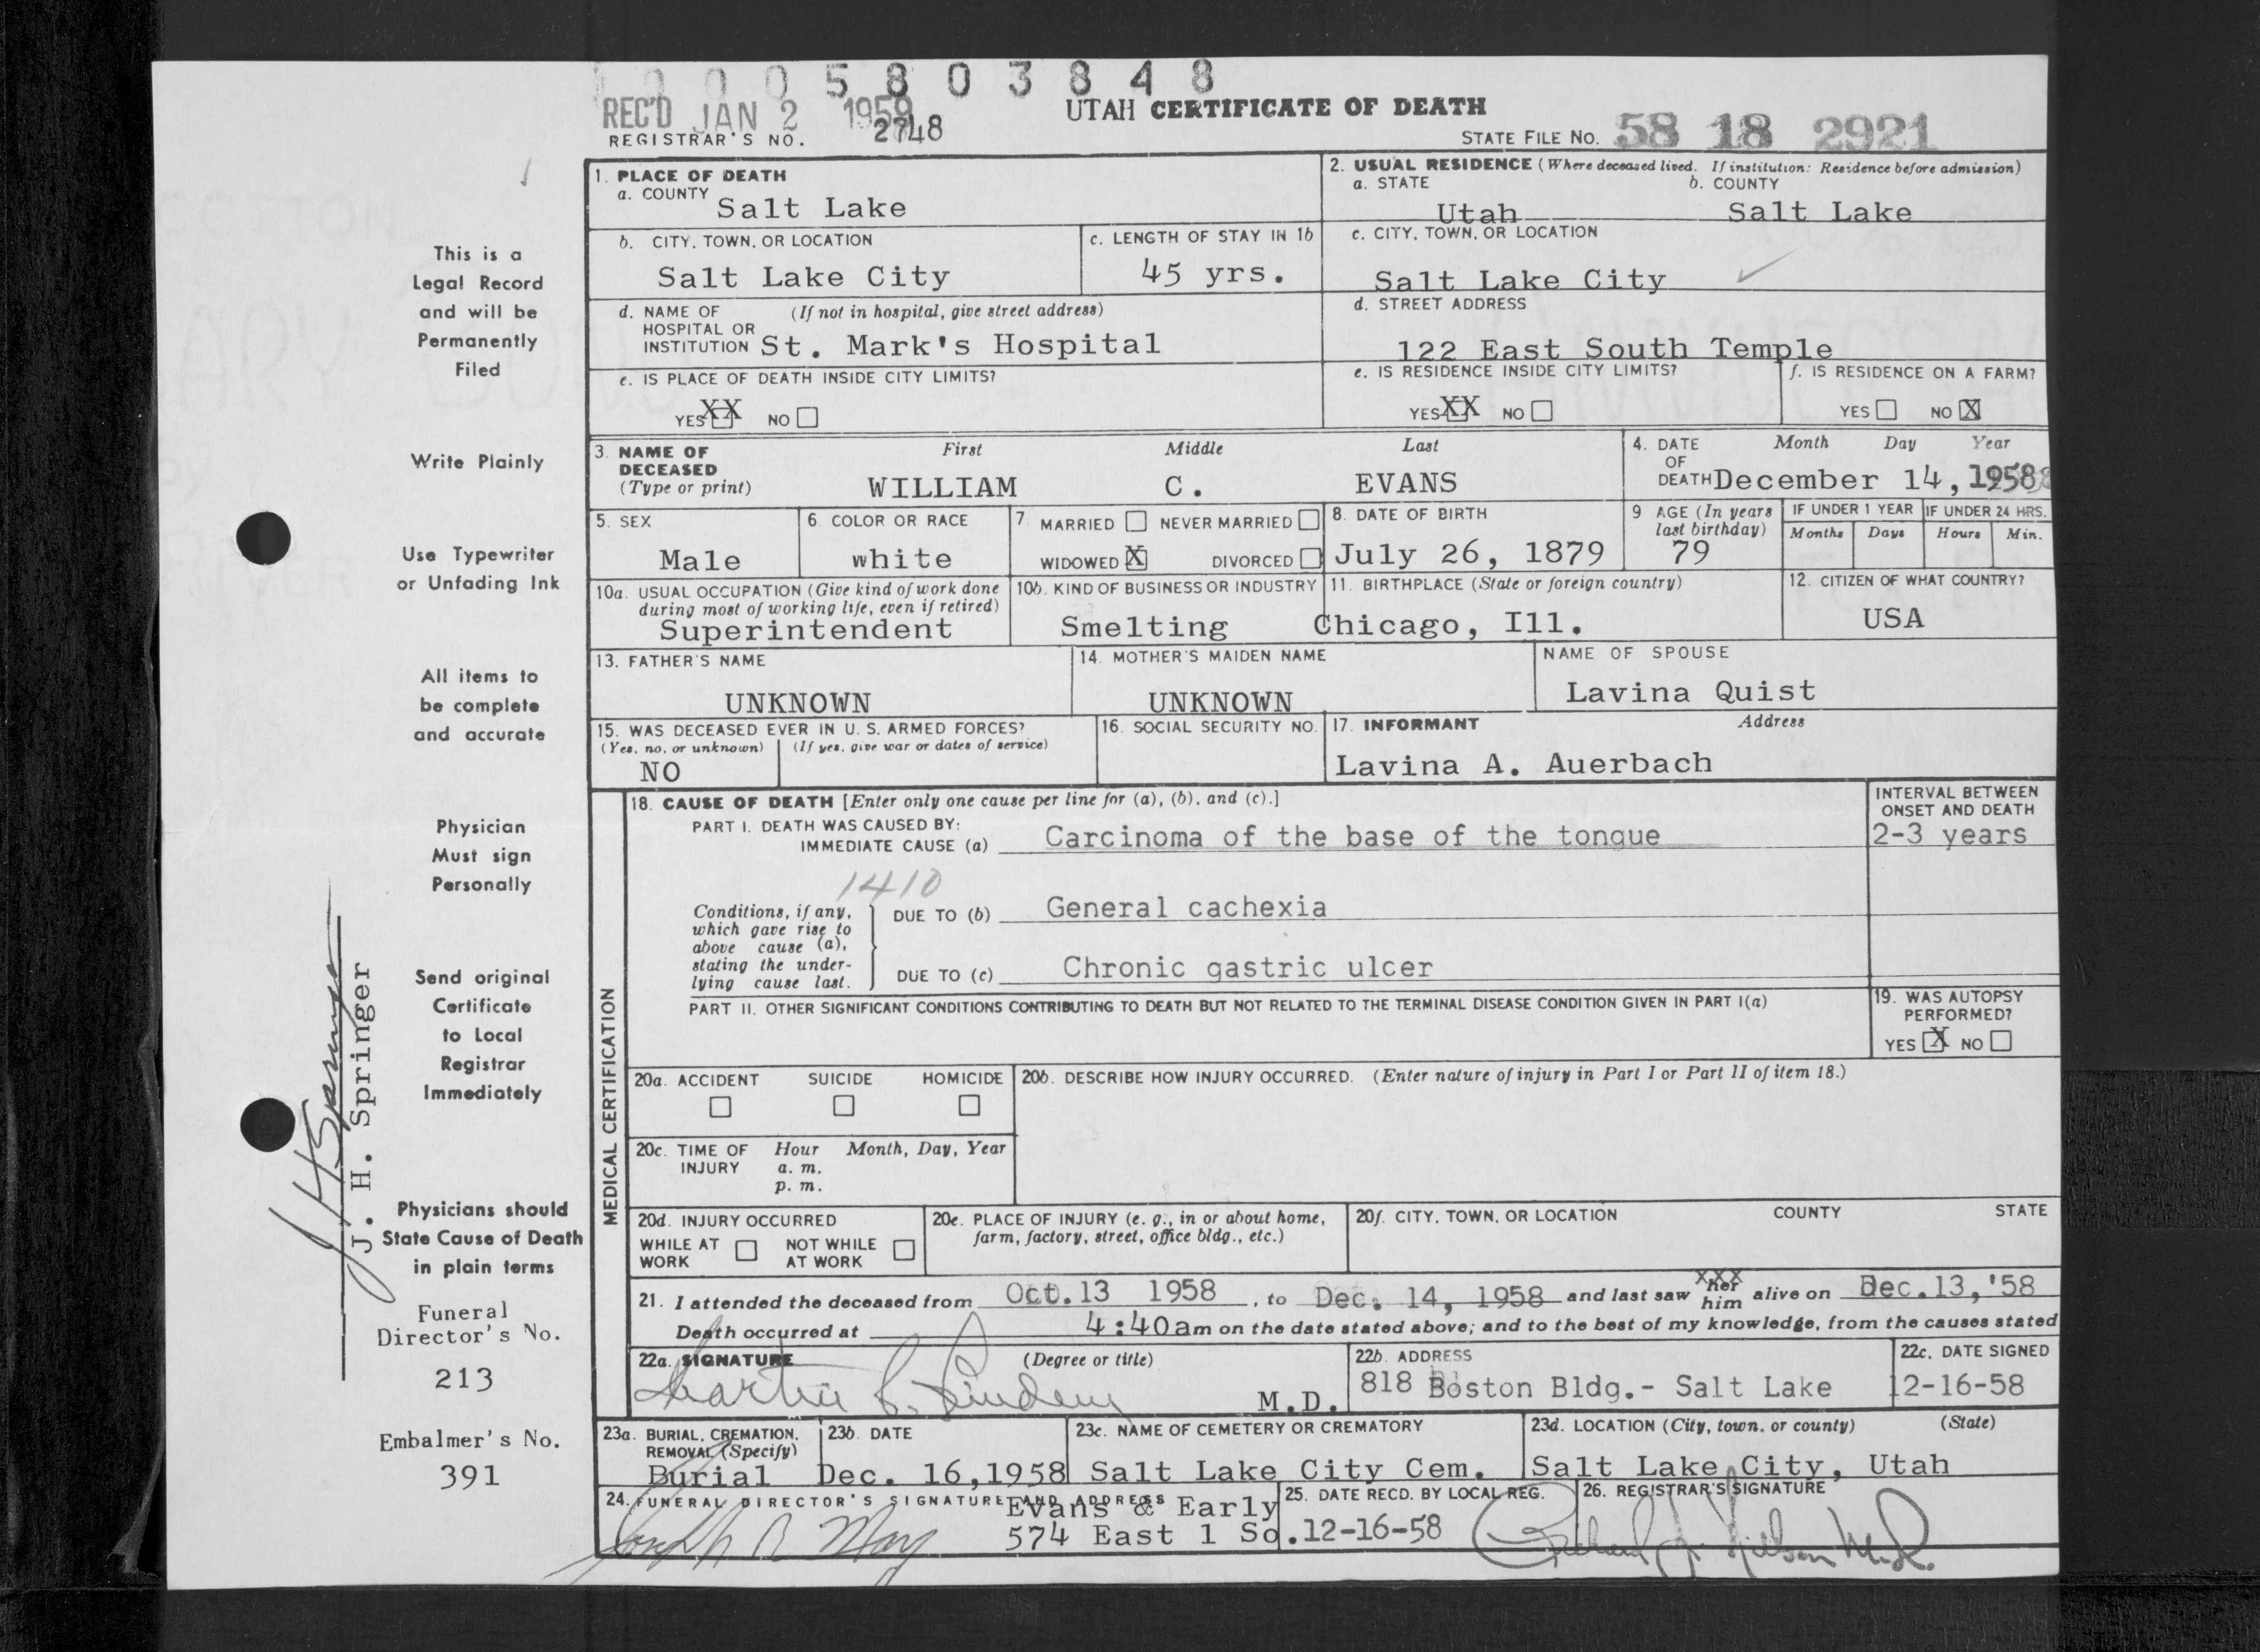 0 0 0 5 8 0 3 8 4 8
REC'D JAN 2 1959
UTAH CERTIFICATE OF DEATH
REGISTRAR'S NO. 2748
STATE FILE NO. 58 18 2921
1. PLACE OF DEATH
a. COUNTY
Salt Lake
2. USUAL RESIDENCE (Where deceased lived. If institution: Residence before admission)
a. STATE b. COUNTY
Utah Salt Lake
b. CITY, TOWN, OR LOCATION
Salt Lake City
c. LENGTH OF STAY IN 1b
45 yrs.
c. CITY, TOWN, OR LOCATION
Salt Lake City
d. NAME OF (If not in hospital, give street address)
HOSPITAL OR
INSTITUTION St. Mark's Hospital
d. STREET ADDRESS
122 East South Temple
e. IS PLACE OF DEATH INSIDE CITY LIMITS?
YES XX NO
e. IS RESIDENCE INSIDE CITY LIMITS?
YES XX NO
f. IS RESIDENCE ON A FARM?
YES NO X
3. NAME OF DECEASED (Type or print)
First Middle Last
WILLIAM C. EVANS
4. DATE OF DEATH
Month Day Year
December 14, 1958
5. SEX
Male
6. COLOR OR RACE
white
7. MARRIED NEVER MARRIED
WIDOWED X DIVORCED
8. DATE OF BIRTH
July 26, 1879
9 AGE (In years last birthday)
79
IF UNDER 1 YEAR
Months Days
IF UNDER 24 HRS.
Hours Min.
10a. USUAL OCCUPATION (Give kind of work done
during most of working life, even if retired)
Superintendent
10b. KIND OF BUSINESS OR INDUSTRY
Smelting
11. BIRTHPLACE (State or foreign country)
Chicago, Ill.
12. CITIZEN OF WHAT COUNTRY?
USA
13. FATHER'S NAME
UNKNOWN
14. MOTHER'S MAIDEN NAME
UNKNOWN
NAME OF SPOUSE
Lavina Quist
15. WAS DECEASED EVER IN U. S. ARMED FORCES?
(Yes, no, or unknown) (If yes, give war or dates of service)
NO
16. SOCIAL SECURITY NO.
17. INFORMANT Address
Lavina A. Auerbach
MEDICAL CERTIFICATION
18. CAUSE OF DEATH [Enter only one cause per line for (a), (b), and (c).]
PART I. DEATH WAS CAUSED BY:
IMMEDIATE CAUSE (a) Carcinoma of the base of the tongue
INTERVAL BETWEEN
ONSET AND DEATH
2-3 years
1410
Conditions, if any,
which gave rise to
above cause (a),
stating the under-
lying cause last.
DUE TO (b) General cachexia
DUE TO (c) Chronic gastric ulcer
PART II. OTHER SIGNIFICANT CONDITIONS CONTRIBUTING TO DEATH BUT NOT RELATED TO THE TERMINAL DISEASE CONDITION GIVEN IN PART I(a)
19. WAS AUTOPSY
PERFORMED?
YES X NO
20a. ACCIDENT SUICIDE HOMICIDE
20b. DESCRIBE HOW INJURY OCCURRED. (Enter nature of injury in Part I or Part II of item 18.)
20c. TIME OF INJURY
Hour Month, Day, Year
a. m.
p. m.
20d. INJURY OCCURRED
WHILE AT WORK NOT WHILE AT WORK
20e. PLACE OF INJURY (e. g., in or about home,
farm, factory, street, office bldg., etc.)
20f. CITY, TOWN, OR LOCATION COUNTY STATE
21. I attended the deceased from Oct. 13 1958, to Dec. 14, 1958 and last saw her him alive on Dec. 13, '58
XXX
Death occurred at 4:40am on the date stated above; and to the best of my knowledge, from the causes stated
22a. SIGNATURE (Degree or title)
M.D.
22b. ADDRESS
818 Boston Bldg.- Salt Lake
22c. DATE SIGNED
12-16-58
23a. BURIAL, CREMATION,
REMOVAL (Specify)
Burial
23b. DATE
Dec. 16,1958
23c. NAME OF CEMETERY OR CREMATORY
Salt Lake City Cem.
23d. LOCATION (City, town, or county) (State)
Salt Lake City, Utah
24. FUNERAL DIRECTOR'S SIGNATURE AND ADDRESS
Joseph R May
Evans & Early
574 East 1 So.
25. DATE RECD. BY LOCAL REG.
12-16-58
26. REGISTRAR'S SIGNATURE
This is a
Legal Record
and will be
Permanently
Filed
Write Plainly
Use Typewriter
or Unfading Ink
All items to
be complete
and accurate
Physician
Must sign
Personally
Send original
Certificate
to Local
Registrar
Immediately
Physicians should
State Cause of Death
in plain terms
Funeral
Director's No.
213
Embalmer's No.
391
J H Springer
J. H. Springer